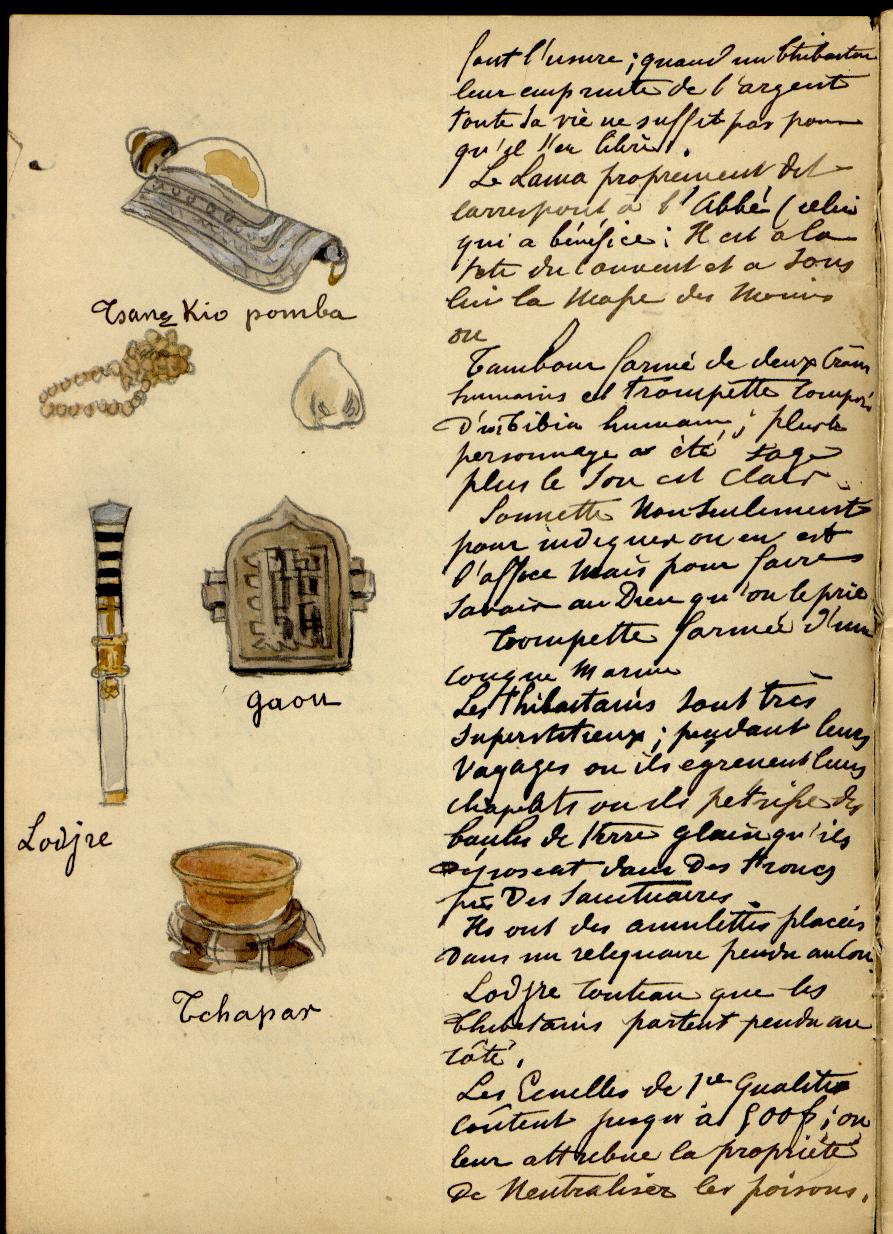 Tsang Kio pomba
gaou
Lodjre
Tchapar
font l'usure ; quand un thibetain
leur emprunte de l'argent
toute sa vie ne suffit pas pour
qu'il s'en libère.
Le Lama proprement dit
correspond à l'Abbé (celui
qui a bénéfice : Il est à la
tête du couvent et a sous
lui la masse des Moines
ou
Tambour formé de deux crânes
humains et trompette composé
d'un tibia humain ; plus le
personnage a été sage
plus le son est clair.
Sonnette Non seulement
pour indiquer ou en est
l'office mais pour faire
savoir au Dieu qu'on le prie
trompette formée d'une
conque marine
Les Thibetains sont très
superstitieux ; pendant leurs
voyages ou ils égrenent leurs
chapelets ou ils petrisse des
boules de terre glaise qu'ils
déposent dans Des troncs
près Des Sanctuaires
Ils ont des amulettes placées
Dans un reliquaire pendu au cou.
Lodjre Couteau que les
thibetains portent pendu au
côté.
Les Ecuelles de 1re Qualité
coûtent jusqu'à 500f ; on
leur attribue la propriété
De Neutraliser les poisons.